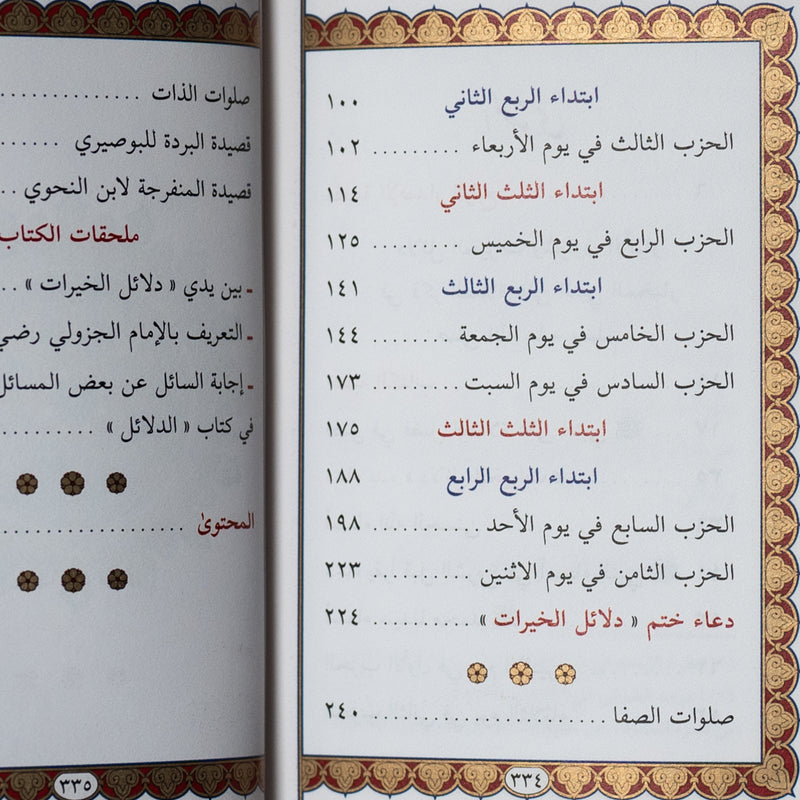 ابتداء الربع الثاني ١٠٠
الحزب الثالث في يوم الأربعاء ......... ١٠٢
ابتداء الثلث الثاني ١١٤
الحزب الرابع في يوم الخميس ......... ١٢٥
ابتداء الربع الثالث ١٤١
الحزب الخامس في يوم الجمعة ........ ١٤٤
الحزب السادس في يوم السبت ......... ١٧٣
ابتداء الثلث الثالث ١٧٥
ابتداء الربع الرابع ١٨٨
الحزب السابع في يوم الأحد ........... ١٩٨
الحزب الثامن في يوم الاثنين .......... ٢٢٣
دعاء ختم « دلائل الخيرات » .......... ٢٢٤
صلوات الصفا ........................ ٢٤٠
٣٣٤
صلوات الذات ..............
قصيدة البردة للبوصيري ......
قصيدة المنفرجة لابن النحوي ..
ملحقات الكتاب
ـ بين يدي « دلائل الخيرات » ..
ـ التعريف بالإمام الجزولي رضي
ـ إجابة السائل عن بعض المسائل
في كتاب « الدلائل » .........
المحتوىٰ ..................
٣٣٥